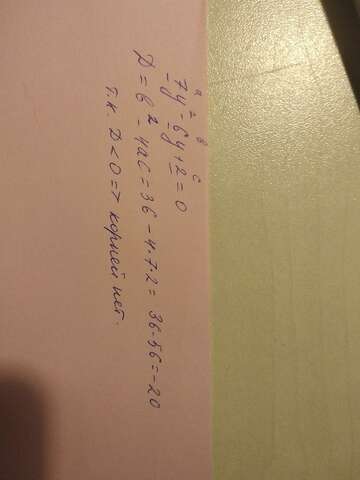 a b c
7y² - 6y + 2 = 0
D = b² - 4ac = 36 - 4·7·2 = 36 - 56 = -20
т.к. D < 0 => корней нет.